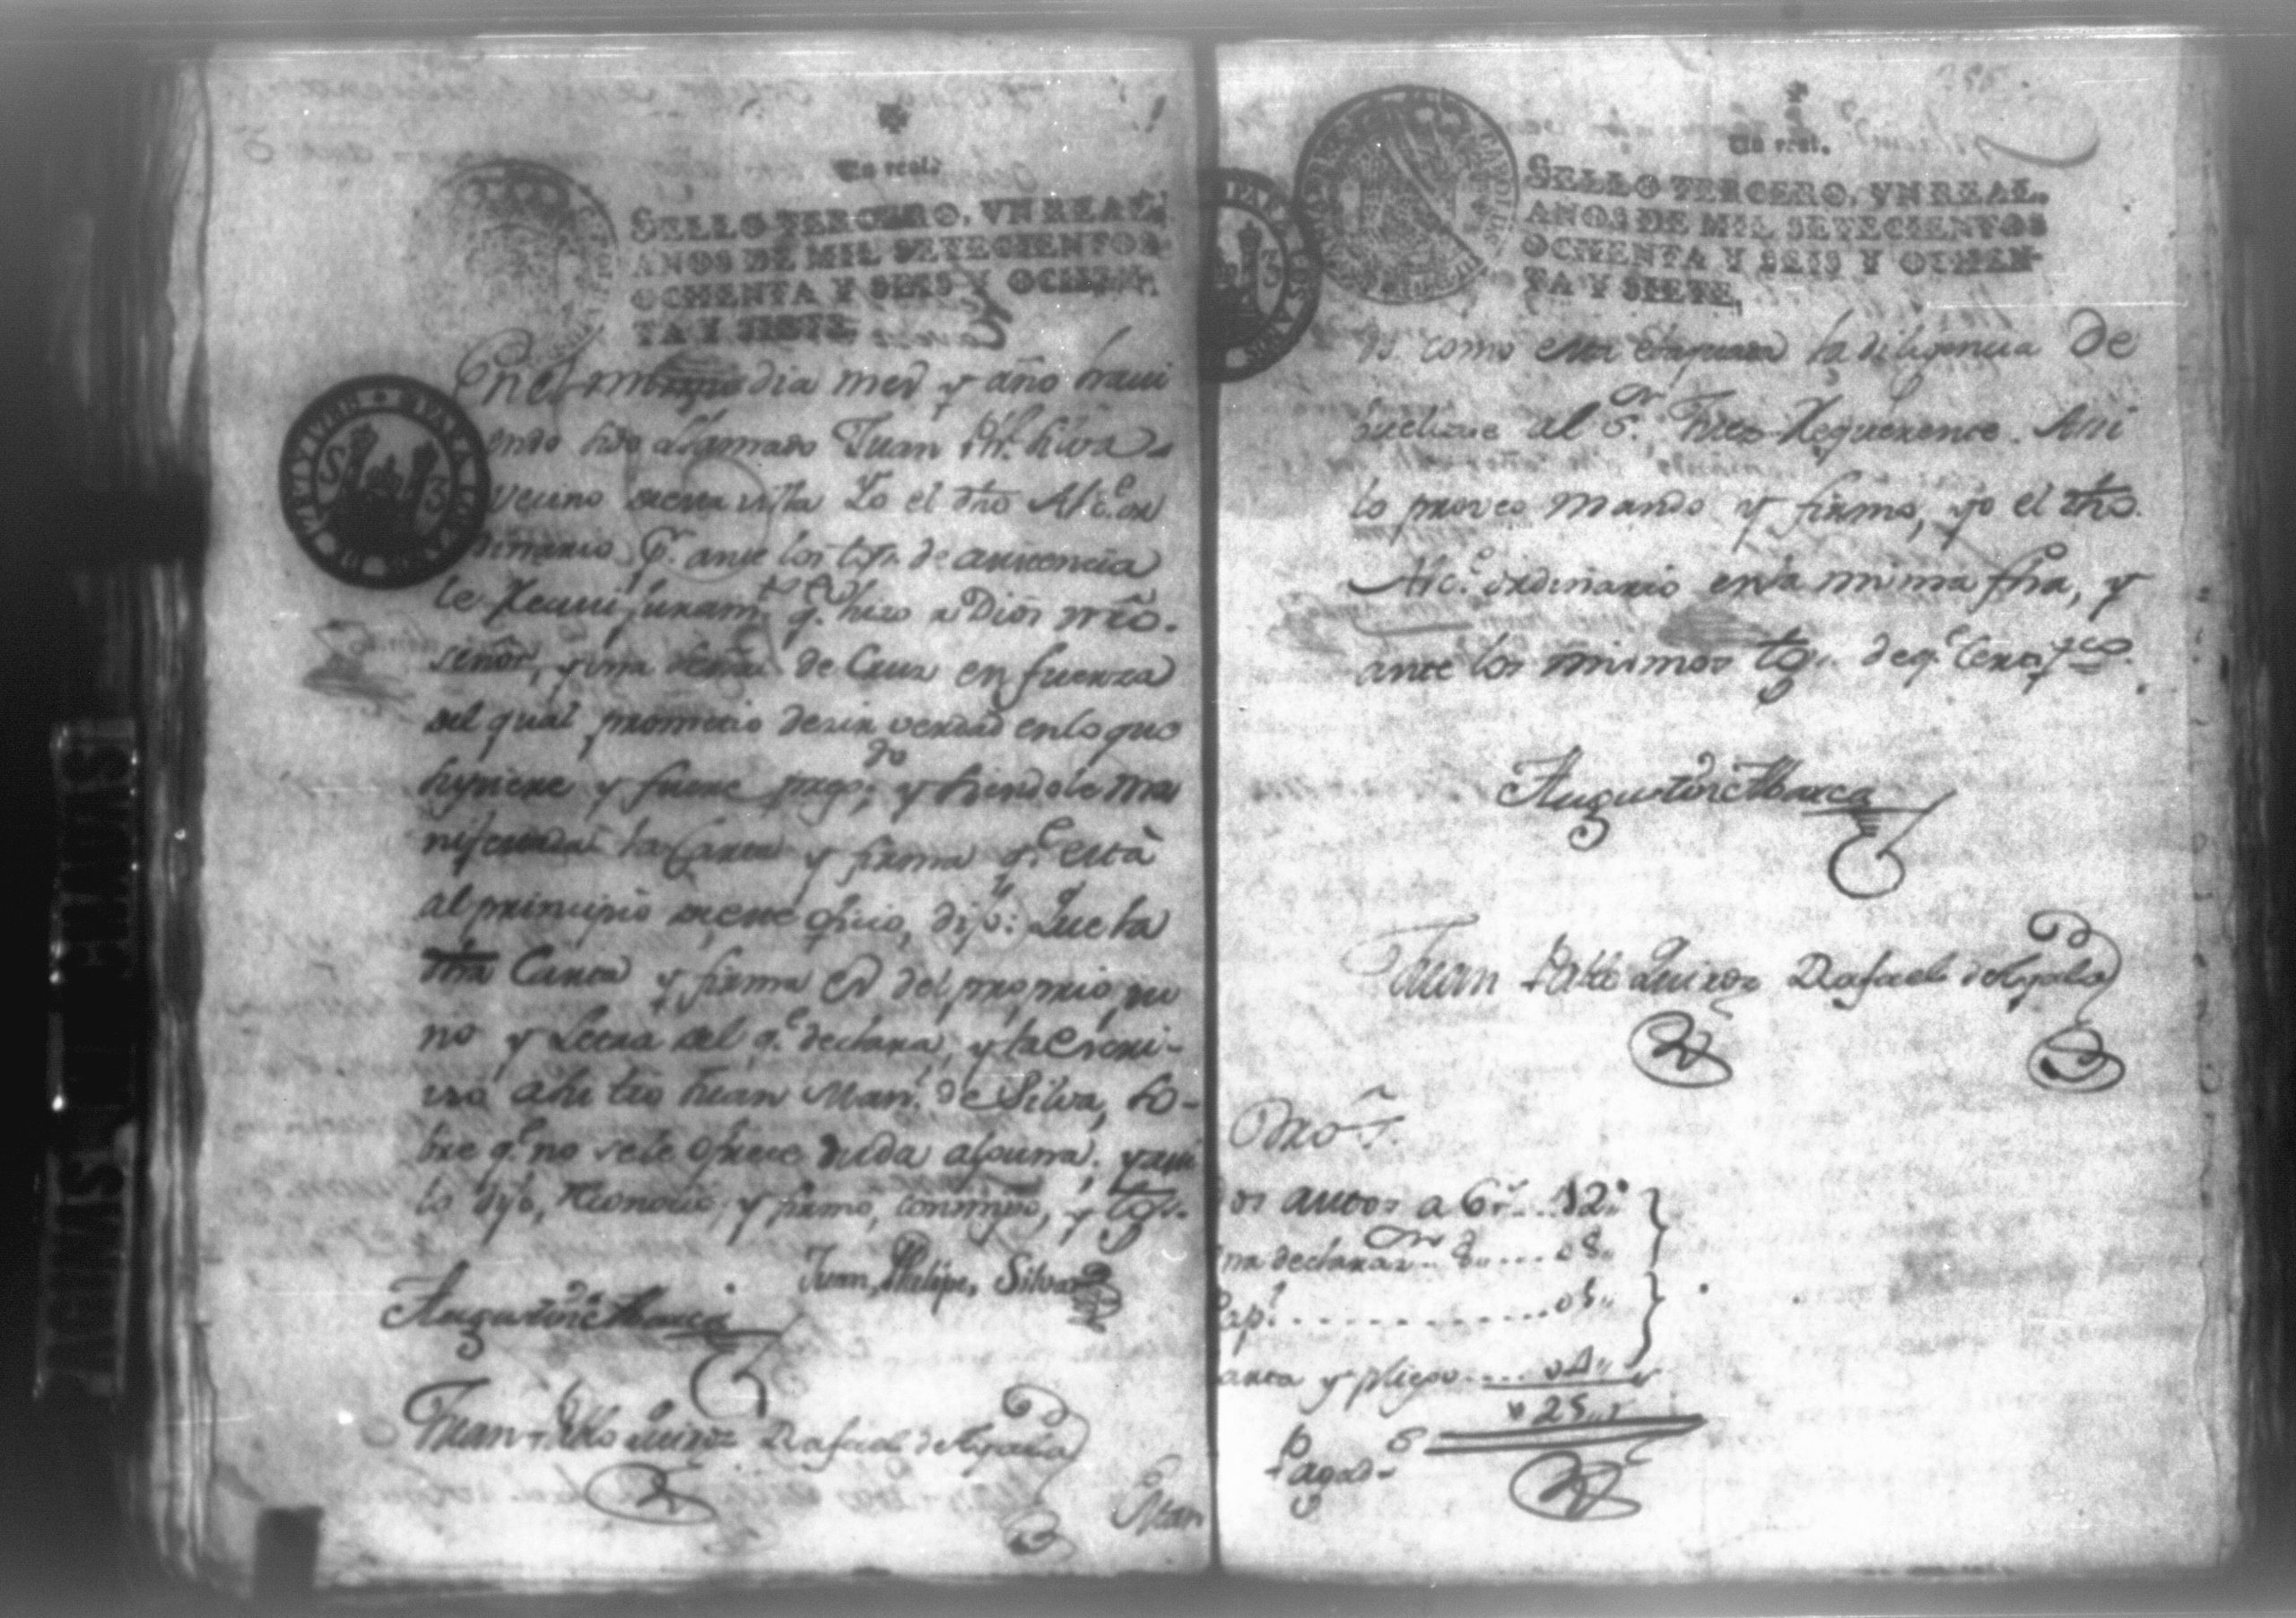 Un real.
SELLO TERCERO, VN REAL,
AÑOS DE MIL SETECIENTOS
OCHENTA Y SEIS Y OCHEN-
TA Y SIETE.
En el mismo dia mes y año havi
endo sido allamado Juan Ph.e Silva
vecino de esta villa Yo el dho Alc.e or
dinario p.r ante los tgs. de asistencia
le Recivi juram.to q.e hizo a Dios nrô.
señor, y una señal de Cruz en fuerza
del qual prometio desir verdad en lo que
supiere y fuere preg.do y siendole ma
nifestada la Carta y firma q.e està
al principio de este oficio, dijo: Que la
dha Carta y firma es del proprio pu
ño y Letra del q.e declara, y la escrivi-
ò a su tio Juan Man.l de Silva, so-
bre q.e no se le ofrece duda alguna; y asi
lo dijo, reconocio, y firmo, conmigo, y tgs.
Juan, Phelipe, Silva
Augustin de Abarca
Juan Pablo Quiroz Rafael de Ayala
Estan
Un real.
SELLO TERCERO, VN REAL,
AÑOS DE MIL SETECIENTOS
OCHENTA Y SEIS Y OCHEN-
TA Y SIETE.
do como esta evaquada la diligencia De
buelvase al S.or Juez Requerente. Asi
lo proveo mando y firmo, yo el dho.
Alc.e ordinario en la misma fha, y
ante los mismos tgs. de q.e Certifico.
Augustin de Abarca
Juan Pablo Quiroz Rafael de Ayala
Dros.
os autos a 6 r.s .. 12"
na declaraz.on .. 8.. .... 08"
Pap.l ............ 01"
arta y pliego .... 04"
25 r
Pagad